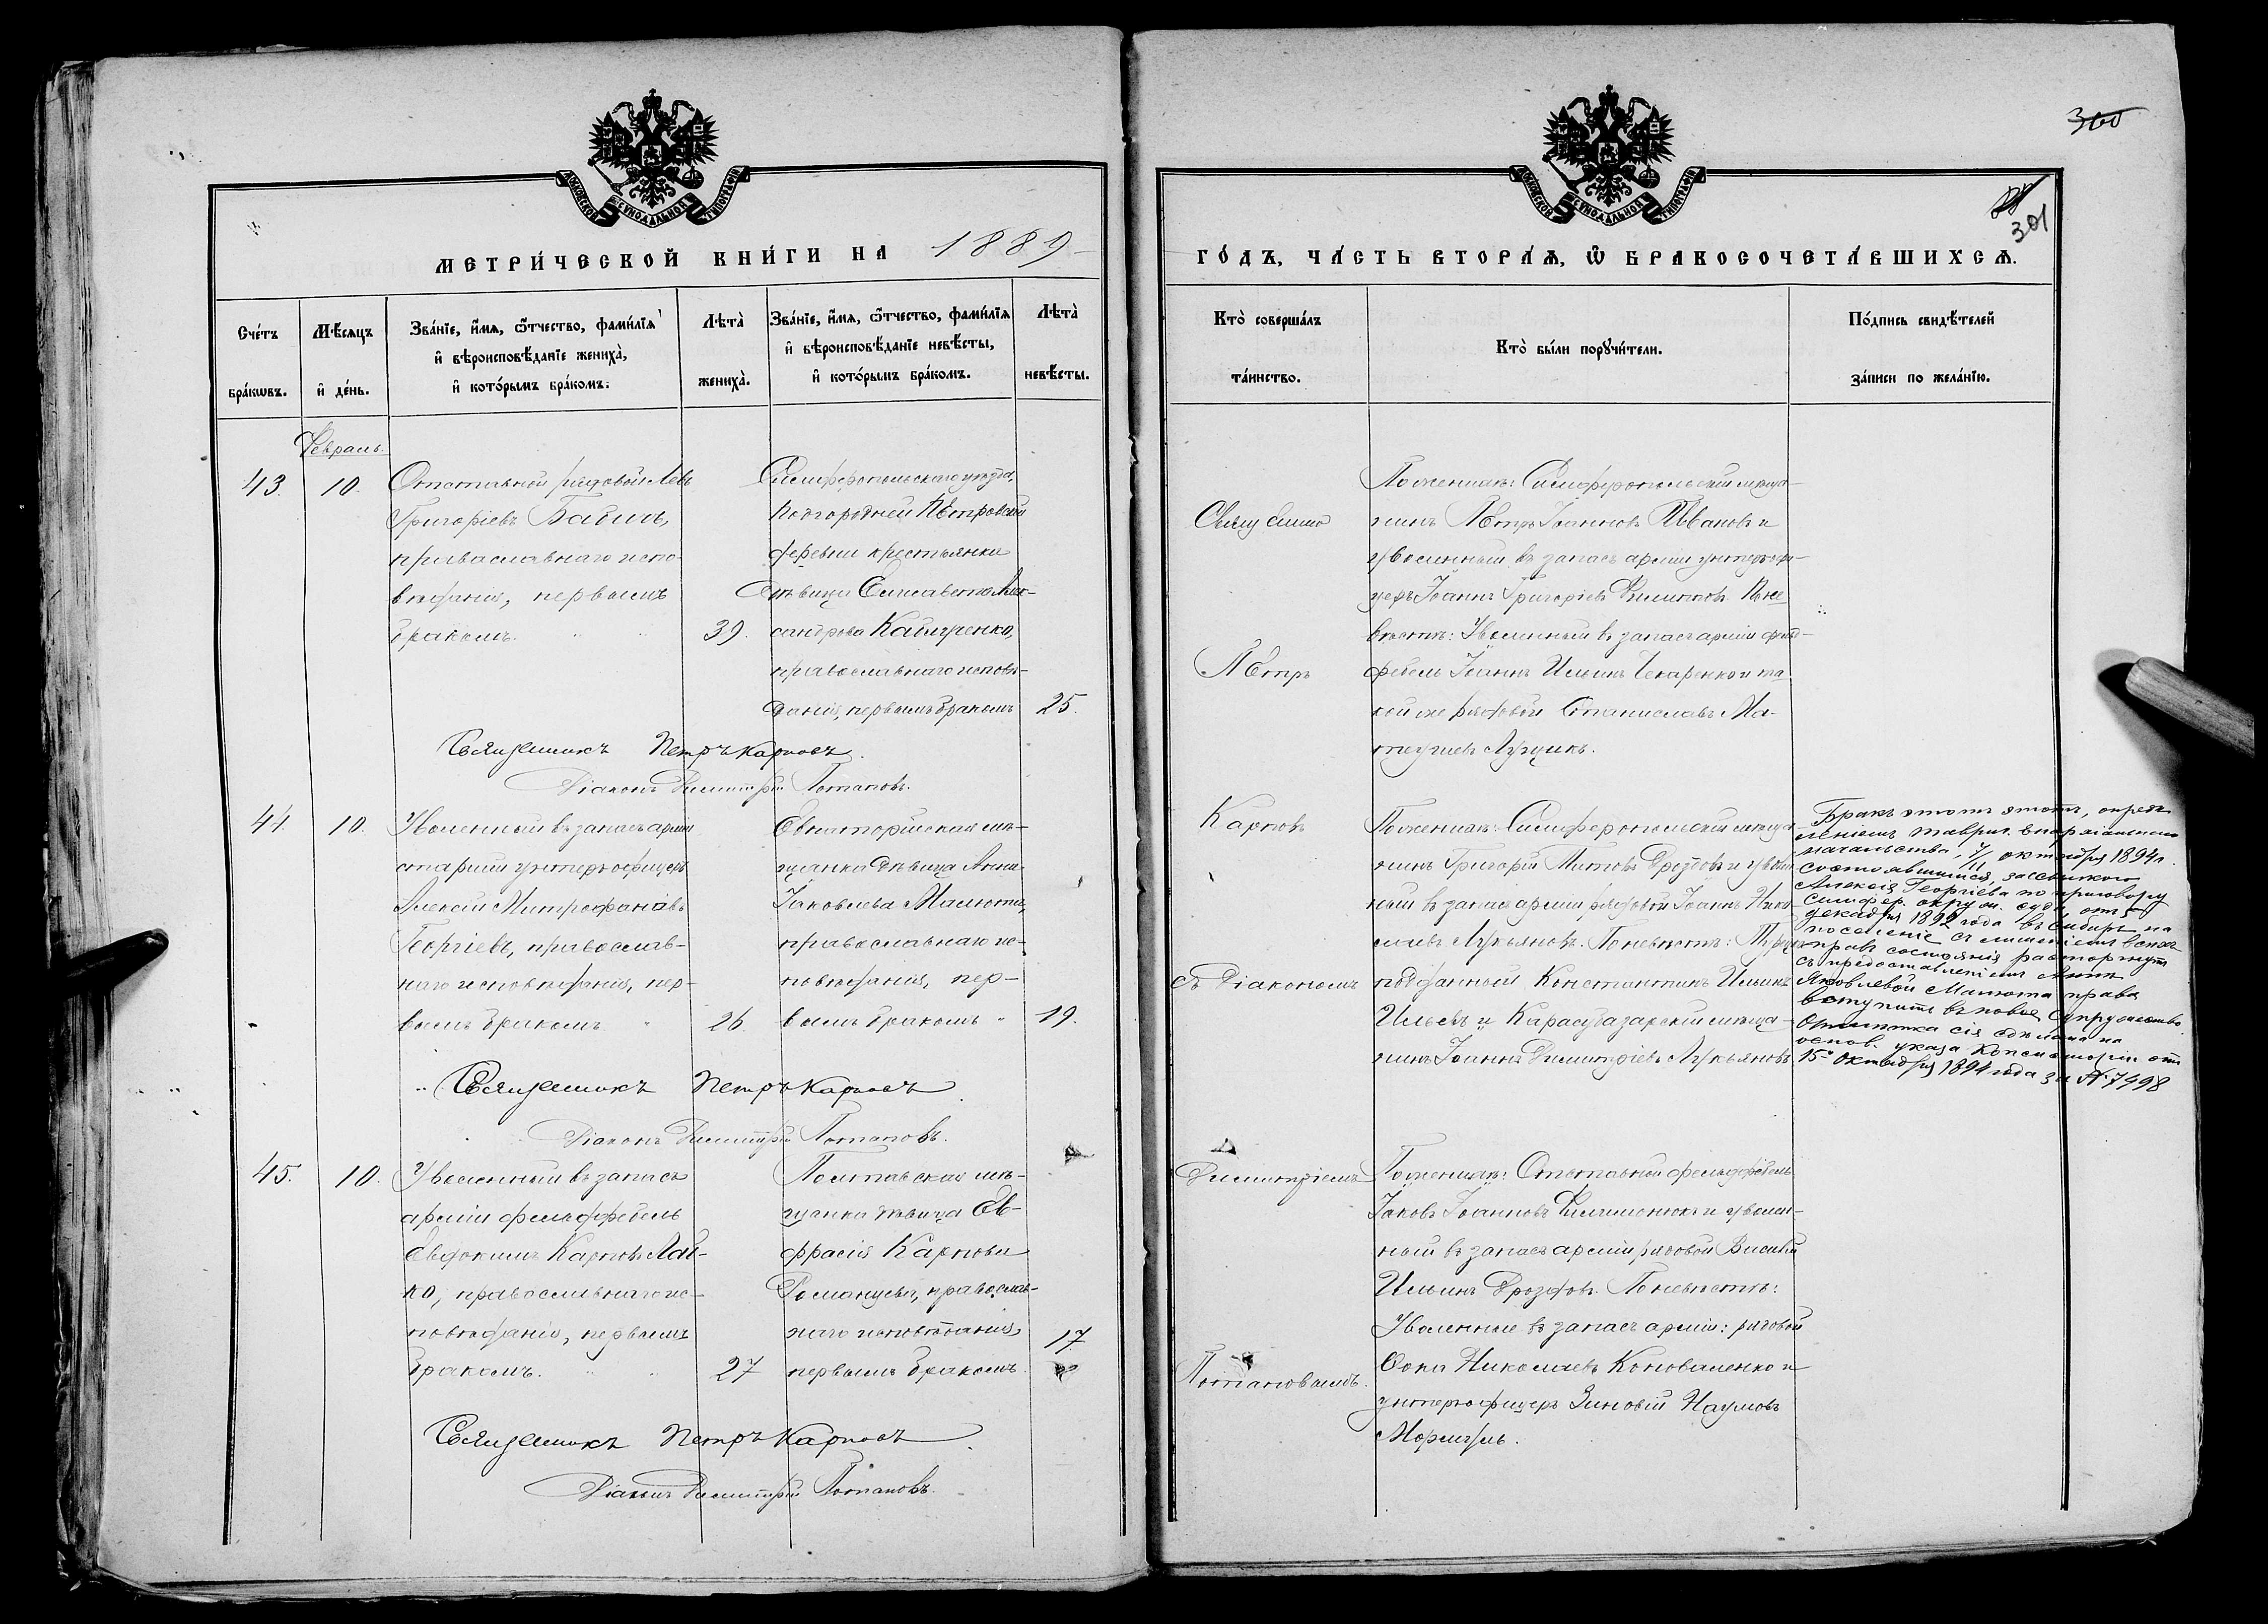 МОСКОВСКОЙ СѴНОДАЛЬНОЙ ТИПОГРАФІИ
МЕТРИ́ЧЕСКОЙ КНИ́ГИ НА 1889
Сче́тъ бра́кωвъ.
Мѣ́сяцъ и҆ де́нь.
Зва́нїе, и҆́мѧ, ѻ҆́тчество, фами́лїѧ
и҆ вѣроисповѣ́данїе жениха̀,
и҆ кото́рымъ бра́комъ.
Лѣта̀ жениха̀.
Зва́нїе, и҆́мѧ, ѻ҆́тчество, фами́лїѧ
и҆ вѣроисповѣ́данїе невѣ́сты,
и҆ кото́рымъ бра́комъ.
Лѣта̀ невѣ́сты.
Февраль
43. 10.
Отставной рядовой Левъ
Григорiевъ Бабичъ,
православнаго испо-
вѣданія, первымъ
бракомъ. 39.
Симферопольскаго уѣзда,
Подгородней Петровской
деревни крестьянка
дѣвица Елисавета Алек-
сандрова
православнаго исповѣ-
данія, первымъ бракомъ 25.
Священникъ Петръ Карповъ.
Діаконъ Димитрій Потаповъ.
44. 10.
Уволенный въ запасъ арміи
старшій унтеръ-офицеръ
Алексій Митрофановъ
Георгіевъ, православ-
наго исповѣданія, пер-
вымъ бракомъ 26.
Евпаторійская мѣ-
щанка дѣвица Анна
Іаковлева Малюта,
православнаго ис-
повѣданія, пер-
вымъ бракомъ 19.
Священникъ Петръ Карповъ.
Діаконъ Димитрій Потаповъ.
45. 10.
Уволенный въ запасъ
арміи фельдфебель
Евдокимъ Карповъ Лай-
ко, православнаго ис-
повѣданія, первымъ
бракомъ. 27
Полтавская мѣ-
щанка дѣвица Ев-
фрасія Карпова
Романцева, православ-
наго исповѣданія,
первымъ бракомъ. 17
Священникъ Петръ Карповъ.
Діаконъ Димитрій Потаповъ.
300
301
МОСКОВСКОЙ СѴНОДАЛЬНОЙ ТИПОГРАФІИ
ГО́ДЪ, ЧА́СТЬ ВТОРА́Ѧ, Ѡ҆ БРАКОСОЧЕТА́ВШИХСѦ.
Кто̀ соверша́лъ та́инство.
Кто̀ бы́ли порꙋчи́тели.
По́дпись свидѣ́телей за́писи по жела́нїю.
Священникъ
Петръ
Карповъ
съ Діакономъ
Димитріемъ
Потаповымъ.
По женихѣ: Симферопольскій мѣща-
нинъ Петръ Іоанновъ Ивановъ и
уволенный въ запасъ арміи унтеръ-офи-
церъ Іоаннъ Григоріевъ Филиповъ. По не-
вѣстѣ: Уволенный въ запасъ арміи фельд-
фебель Іоаннъ Ильинъ Чекаренко и та-
кой же рядовой Станиславъ Ма-
По женихѣ: Симферопольскій мѣща-
нинъ Григорій Дроздовъ и уволен-
ный въ запасъ арміи рядовой Іоаннъ Нико-
лаевъ Лукьяновъ. По невѣстѣ: Турец-
поданный Константинъ Ильинъ
Ильевъ и Карасубазарскій мѣща-
нинъ Іоаннъ Димитріевъ Лукьяновъ
Бракъ этотъ этотъ, опредѣ-
леніемъ Таврич. епархіальнаго
начальства, 7/11 октября 1894 г.
состоявшимся, за ссылкою
Алексія Георгіева по приговору
симфер. окруж. суда, отъ 5
декабря 1892 года въ Сибирь на
поселеніе съ лишеніемъ всѣхъ
правъ состоянія расторгнутъ
съ предоставленіемъ Аннѣ
Яковлевой Малюта права
вступить въ новое супружество
Отмѣтка сія сдѣлана на
основ. указа Консисторіи отъ
15 октября 1894 года за № 7498
По женихѣ: Отставной фельдфебель
Іаковъ Іоанновъ Филимонюкъ и уволен-
ный въ запасъ арміи рядовой Василій
Ильинъ Дроздовъ. По невѣстѣ:
Уволенные въ запасъ арміи: рядовой
Ѳока Николаевъ Коноваленко и
унтеръ-офицеръ Зиновій Наумовъ